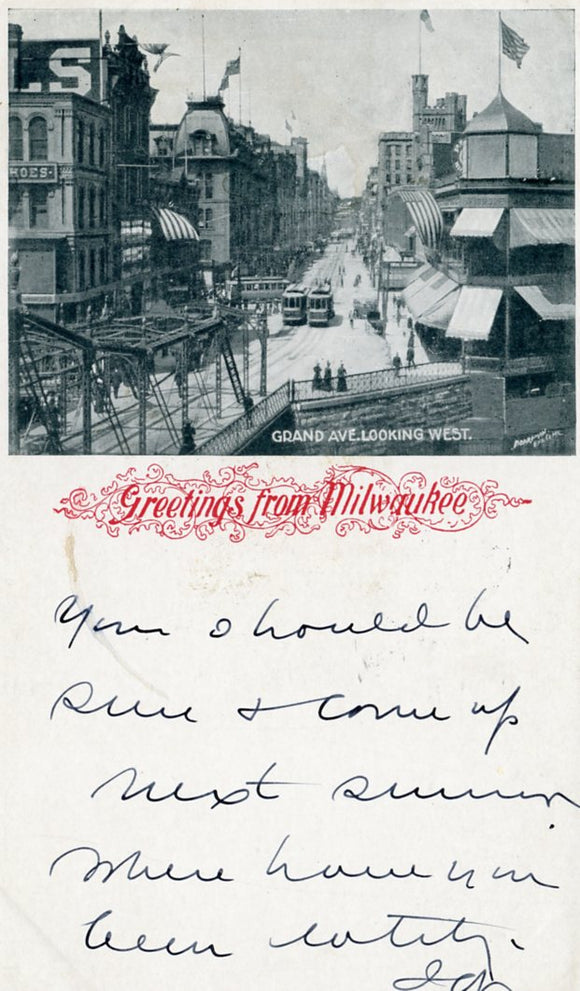 LS
HOES.
GRAND AVE. LOOKING WEST.
Greetings from Milwaukee
You should be
sure & come up
next summer
Where have you
been lately.